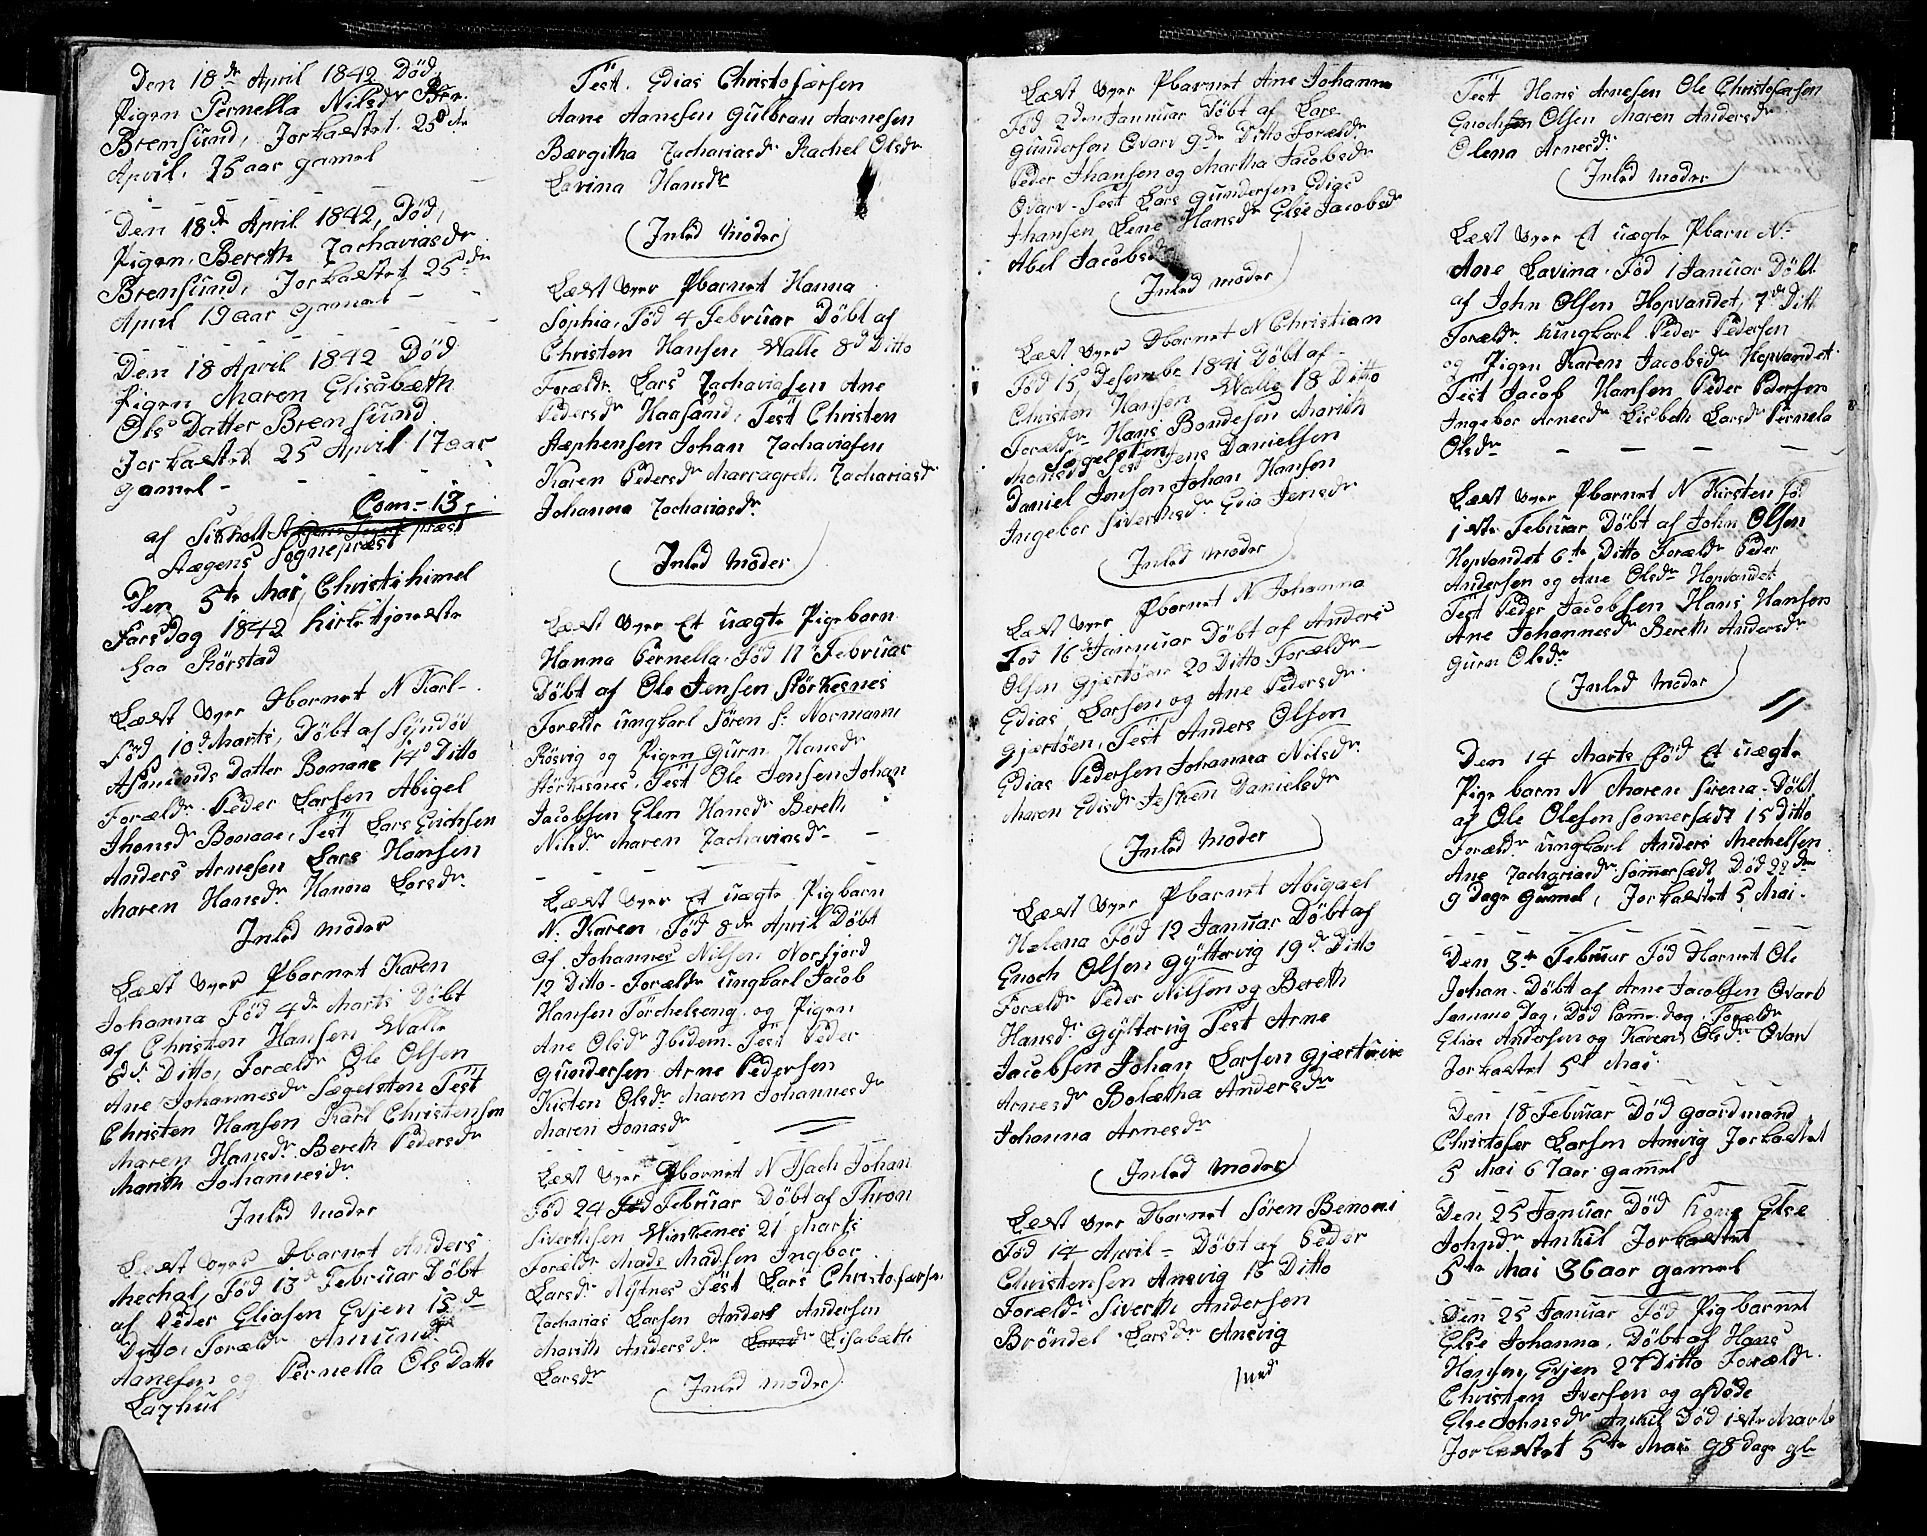 Den 18de April 1842 Död,
Pigen Pernella Nilsdr Bren
Brensund, Jorkastet. 25de
April. 25 aar gamel
Den 18de April 1842, Död,
Pigen. Bereth Zachariasdr
Brensund, Jorkastet 25de
April 19 aar gamel
Den 18 April 1842 Död
Pigen Maren Elisabeth
Ols Datter Brensund
Jorkastet 25 April 17 aar
gamel -
Com - 13
af Sikholt
Aagens Sognepræst
Den 5te Mai, Christi himel
Fars Dag 1842 kirketjeneste
paa Rörstad
Læst över Dbarnet N Karl -
Föd 10d Marts, Döbt af
Asmunds Datter Bonaae 14d Ditto
Forældr. Peder Larsen Abigel
Jhonsdr Bonaae, Test Lars Erichsen
Anders Arnesen Lars Hansen
Maren Hansdr. Hanna Larsdr.
Inled moder
Læst över Pbarnet Karen
Johanna Föd 4de Marts Döbt
af Christen Hansen Walle
6d. Ditto, Forældr Ole Olsen
Ane Johannesdr Sægelsten Test
Christen Hansen Karl Christensen
Maren Hansdr. Bereth Pedersdr
Marith Johannesdr.
Inled moder
Læst över Dbarnet Anders
Mechal, Föd 13d Februar Döbt
af Peder Eliasen Evjen 15de
Ditto, Forældr Amund
Aanesen og Pernella Ols Datte
Layhul
Test. Edias Christofærsen
Aane Aanesen Gulbran Aarnesen
Bærgitha Zachariasdr Rachel Olsdr
Lavina Hansdr
Inled moder
Læst över Pbarnet Hanna
Sophia, Föd 4 Februar Döbt af
Christen Hansen Walle 8d Ditto
Forældr Lars Zachariasen Ane
Pedersdr Haasand, Test Christen
Stæphensen Johan Zachariasen
Karen Pedersdr Marragreth Zachariasdr
Johanna Zachariasdr.
Inled moder
Læst över Et uægte Pigebarn
Hanna Pernella, Föd 17 Februar
Döbt af Ole Jensen Störkesnes
Forældr ungkarl Sören S: Normann
Rösvig og Pigen Gurn Hansdr
Störkesnes. Test Ole Jensen Johan
Jacobsen Elen Hansdr Bereth
Nilsdr. Maren Zachariasdr -
Læst över Et uægte Pigbarn
N. Karen, Föd 8de April Döbt
af Johannes Nilsen Norfjord
12 Ditto - Forældr ungkarl Jacob
Hansen Törchelseng. og Pigen
Ane Olsdr Ibidem. Test Peder
Gundersen Arne Pedersen
Kisten Olsdr Maren Johannesdr
Maren Jonasdr
Læst över Dbarnet N Isach Johan
Föd 24 Februar Döbt af Thron
Siverthsen Winkenes 21 Marts
Forældr Mads Madsen Ingbor
Larsdr. Nystnes Test Lars Christofærsen
Zacharias Larsen Anders Andersen
Marith Andersdr Larsdr Elisabeth
Larsdr
Inled moder
Læst över Pbarnet Ane Johanna
Föd 2den Januar Döbt af Lars
Gundersen Qvarv 9de Ditto Forældr
Peder Jhansen og Martha Jacobsdr
Qvarv - Test Lars Gundersen Edias
Jhansen Lene Hansdr Else Jacobsdr
Abel Jacobsdr
Inled moder
Læst över Dbarnet N Christian
Föd 15 Desember 1841 Döbt af -
Christen Hansen Walle 18 Ditto
Forældr. Hans Bondesen Marith
Monsdr Sægelsten Test Jens Danielsen
Daniel Jensen Johan Hansen
Ingebor Siverthsdr. Edia Jensdr
Inled moder
Læst över Pbarnet N Johanna
Föd 16de Januar Döbt af Anders
Olsen Gjertöen 20 Ditto Forældr -
Edias Larsen og Ane Pedersdr.
Gjertöen, Test Anders Olsen
Edias Pedersen Johanna Nilsdr.
Maren Edisdr Jesken Danielsdr
Inled moder
Læst över Pbarnet Abigael
Hælena Föd 12 Januar Döbt af
Enoch Olsen Gyltervig 19de Ditto
Forældr Peder Nilsen og Bereth
Hansdr Gyltervig Test Arne
Jacobsen Johan Larsen Gjærtrue
Arnesdr Bolætha Andersdr
Johanna Arnesdr
Inled moder
Læst över Dbarnet Sören Benoni
Föd 14 April - Döbt af Peder
Christensen Ansvig 16 Ditto
Forældr Siverth Andersen
Bröndel Larsdr Ansvig
Test Hans Arnesen Ole Christofærsen
Enochsen Olsen Maren Andersdr
Olena Arnesdr.
Inled moder
Læst över Et uægte Pbarn N.
Ane Lavina. Föd 1 Januar Döbt
af John Olsen Hopvandet, 7de Ditt
Forældr. ungkarl Peder Pedersen
og Pigen Karen Jacobsdr Hopvandet.
Test Jacob Hansen Peder Pedersen
Ingebor Arnesdr Lisbeth Larsdr Pernela
Olsdr
Læst över Pbarnet N Kirsten Föd
1ste Februar Döbt af John Olsen
Hopvandet 6te Ditto Forældr Peder
Andersen og Ane Olsdr Hopvandet
Test Peder Jacobsen Hans Hansen
Ane Johannesdr Bereth Andersdr
Gurn Olsdr
Inled moder
Den 14 Marts föd Et uægte
Pige barn N Maren Sirena - Döbt
af Ole Olesen Somersædt 15 Ditto
Forældr. ungkarl Anders Mechelsen.
Ane Zachgriasdr. Sömmersædt Död 22de
9 Dage gammel, Jorkastet 5 Mai.
Den 3de Februar Föd Dbarnet Ole
Johan. Döbt af Arne Jacobsen Qvarv
samme Dag. Död samme dag. Forældr
Elias Andersen og Karen Olsdr. Qvarv
Jorkastet 5t Mai.
Den 18 Februar Död gaardmand
Christofer Larsen Ansvig Jorkastet
5 Mai 67 aar gamel
Den 25 Januar Död Kone Else
Johnsdr. Ankil Jorkastet
5te Mai 36 aar gamel
Den 25 Januar Föd Pigbarnet
Else Johanna, Döbt af Hans
Hansen Evjen 27 Ditto Forældr.
Christen Iversen og afdöde
Else Johnsdr Ankil Död 1ste Marts
Jorkastet 5te Mai 98 dage gl